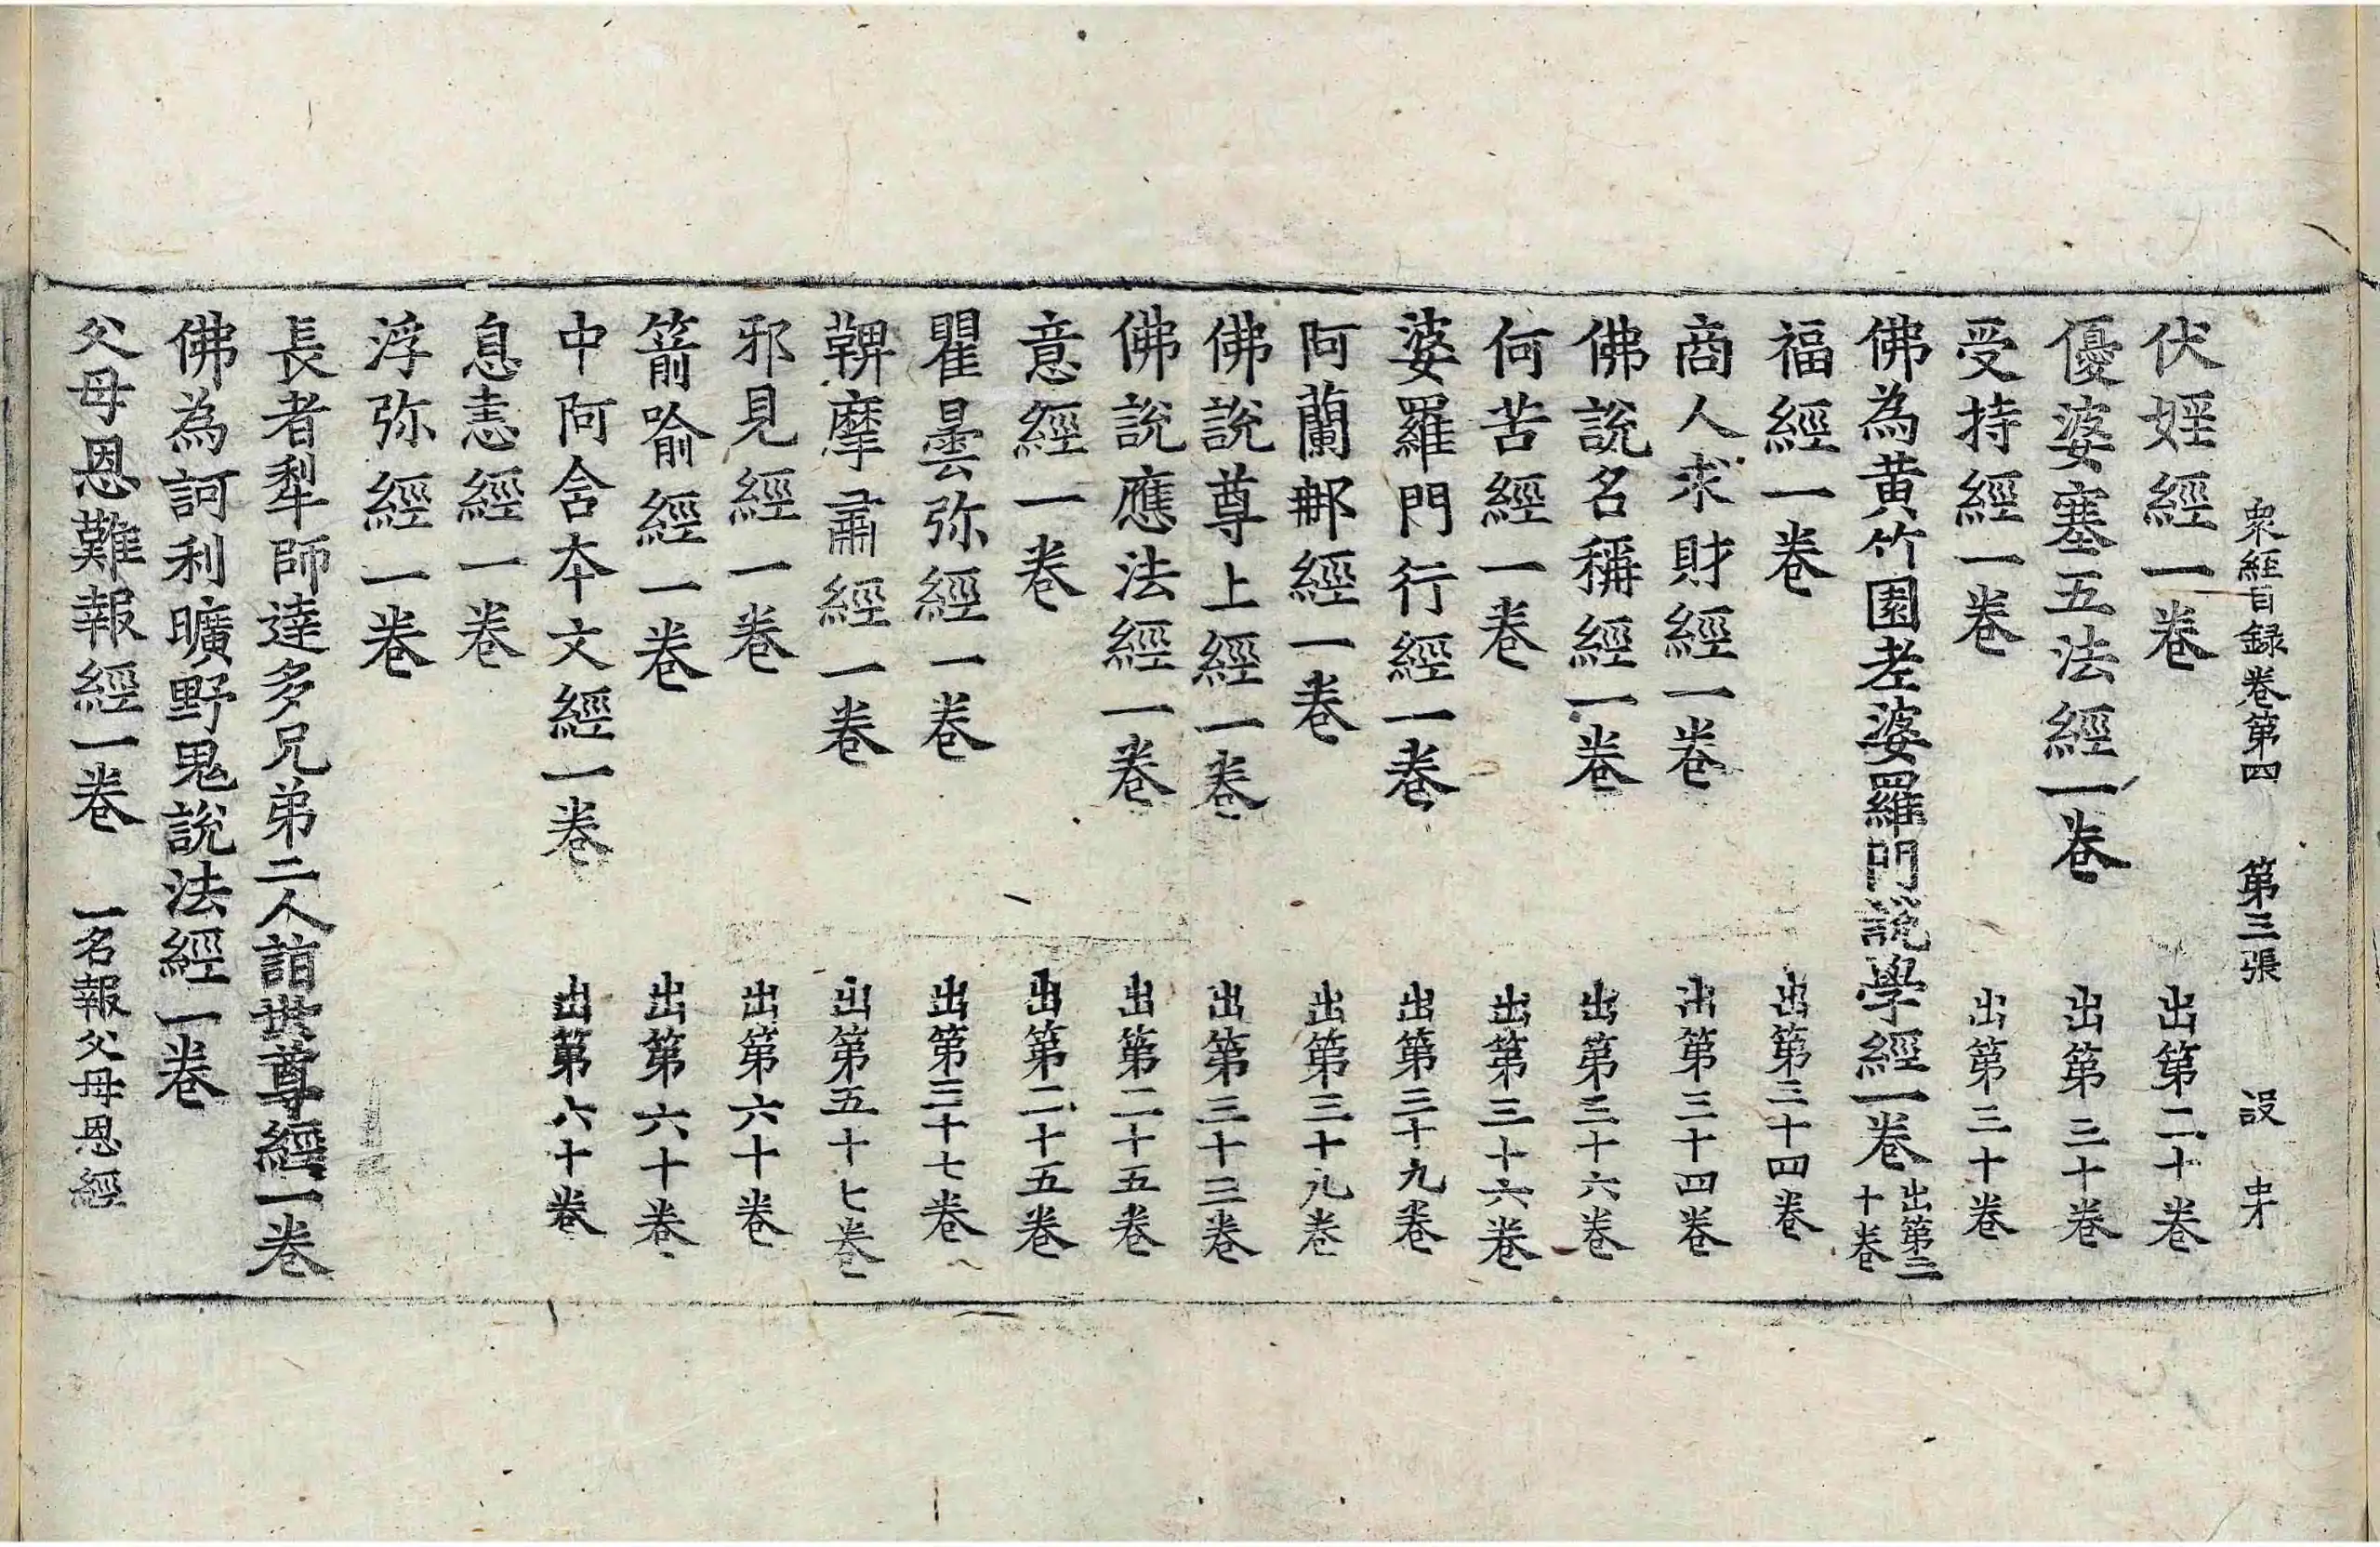 衆經目録卷第四 第三張 設 
伏婬經一卷 出第二十卷
優婆塞五法經一卷 出第三十卷
受持經一卷 出第三十卷
佛為黄竹園老婆羅門説學經一卷 出第二十卷
福經一卷 出第三十四卷
商人求財經一卷 出第三十四卷
佛説名稱經一卷 出第三十六卷
何苦經一卷 出第三十六卷
婆羅門行經一卷 出第三十九卷
阿蘭那經一卷 出第三十九卷
佛説尊上經一卷 出第三十三卷
佛説應法經一卷 出第二十五卷
意經一卷 出第二十五卷
瞿曇弥經一卷 出第三十七卷
鞞摩肅經一卷 出第五十七卷
邪見經一卷 出第六十卷
箭喻經一卷 出第六十卷
中阿含本文經一卷 出第六十卷
息恚經一卷
浮弥經一卷
長者犁師達多兄弟二人詣世尊經一卷
佛為訶利曠野鬼説法經一卷
父母恩難報經一卷 一名報父母恩經